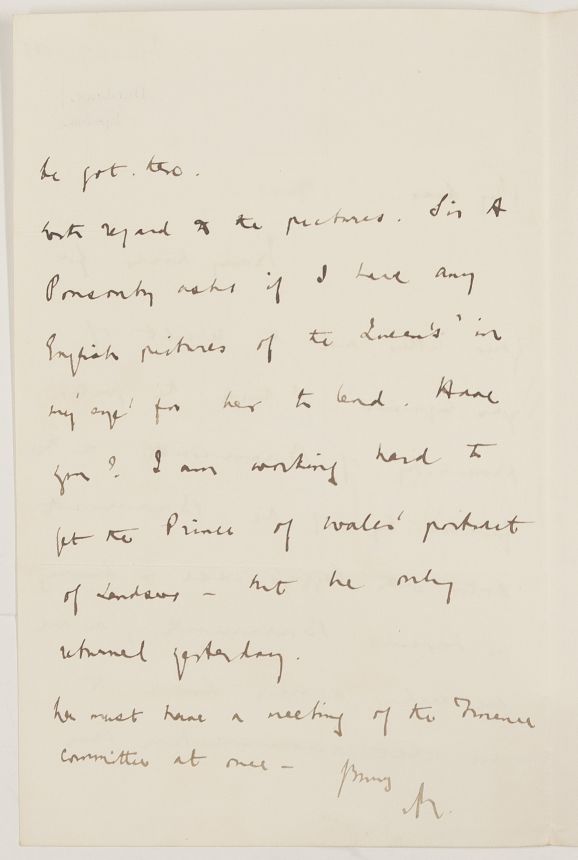 be got. two.
With regard to the pictures. Sir A
Ponsonby asks if I have any
English pictures of the Queen's "in
my eye' for her to lend. Have
you? I am working hard to
get the Prince of Wales' portrait
of Landseer – but he only
returned yesterday.
We must have a meeting of the Finance
committee at once –